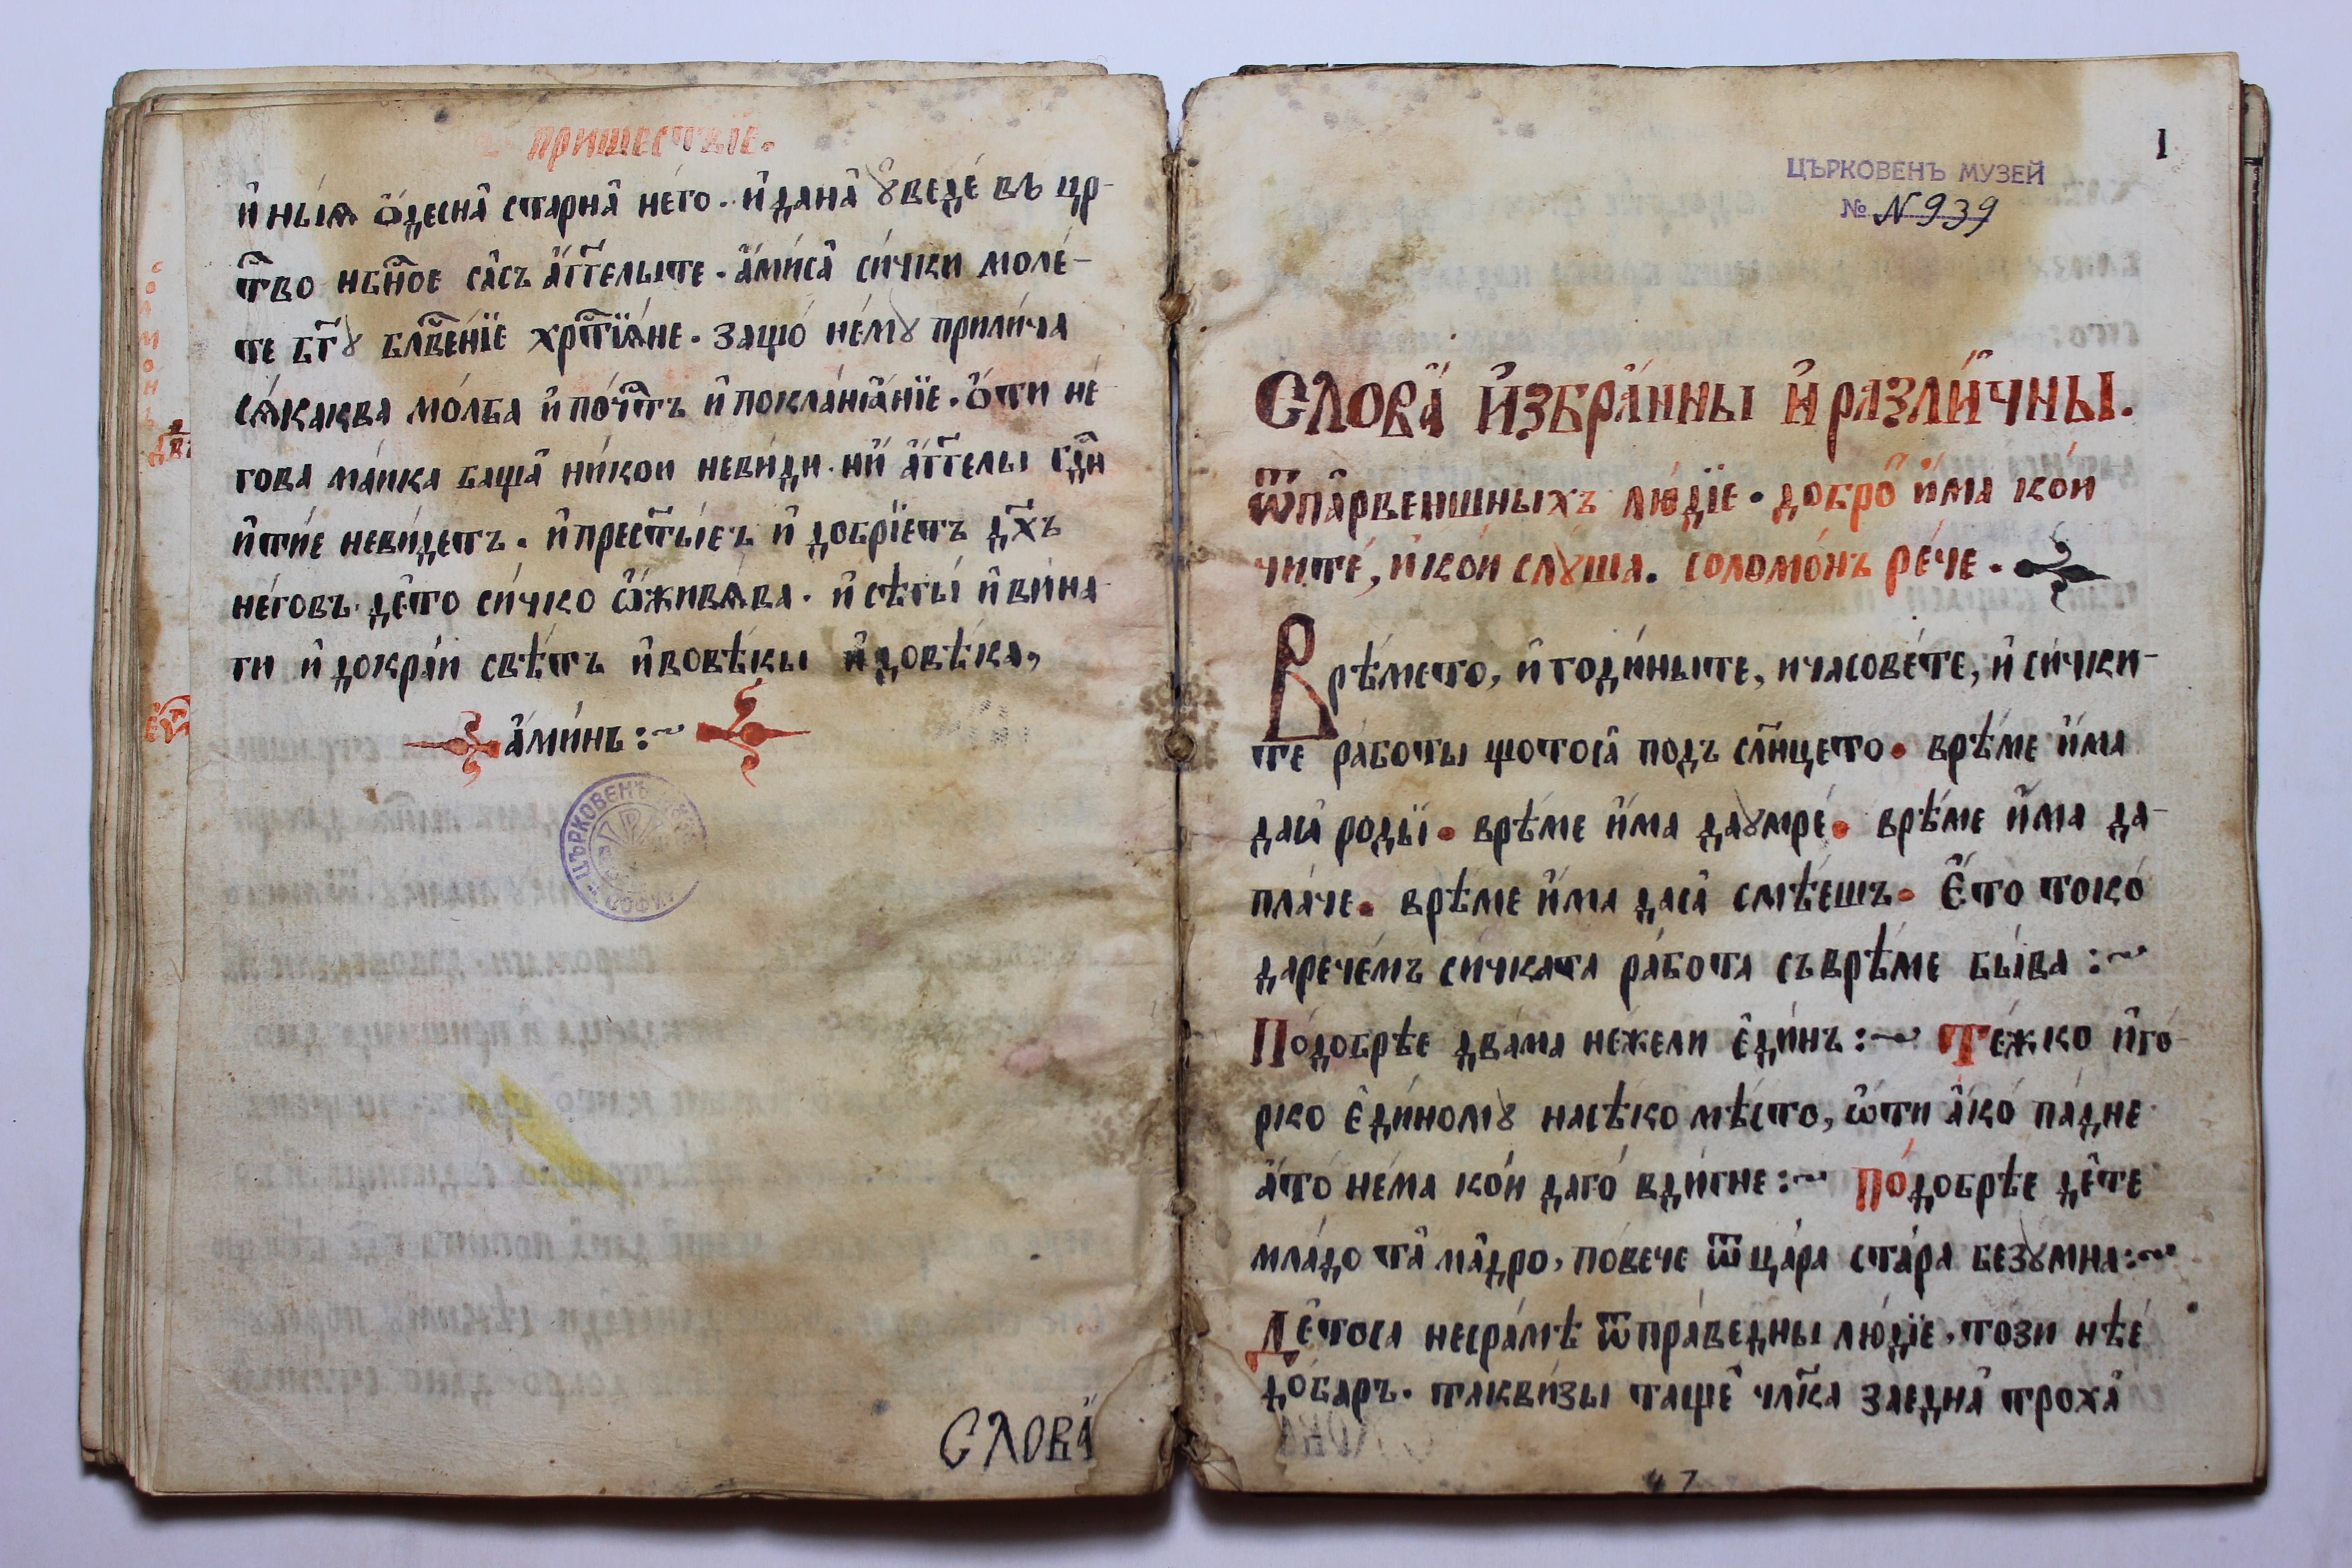 пришествїе.
и҆ ны́ѧ ѿдесна̂ старна̂ не́го. и҆ дана̂ ꙋ҆веде́ въ цр-
т҃во нб҃ное са̂съ а҆́гг҃елыте. а҆ми́са̂ си́чки моле́-
те бг҃ꙋ бл҃ве́нїе хрт҃їѧ́не. защо́ не́мꙋ прили́ча
сѧ́каква мо́лба и҆ по́чт҃ъ и҆ покланѧ́нїе. ѻ҆́ти не́
гова ма́ика баща̂ ни́кои неви́ди. ни҆́ а҆́гг҃елы гд҃ни
и҆ ти́е неви́детъ. и҆ прест҃ы́етъ и҆ добрїетъ дх҃ъ
не́говъ. де̂то си́чко ѡ҆живѧ́ва. и҆ сѣ́гы́ и҆ ви́на
ги и҆ докра́и свѣ́тъ и҆ вовѣ́кы и҆ довѣ́ка,
а҆ми́нь:~
Слова̀
I
ЦЪРКОВЕНЪ МУЗЕЙ
№ N939
Слова̀ и҆збра́нны и҆ разли́чны.
ѿпа̂рвеишныхъ лю́дїе. добро̀ и҆́ма ко́и
чите́, и҆ ко́и слꙋ́ша. соломо́нъ ре́че.
Врѣ́мето, и҆ годи́ныте, и часове́те, и҆ си́чки-
те ра́боты щотоса̂ подъ сл҃нцето. врѣ́ме и҆́ма
даса̂ роды̀. врѣ́ме и҆́ма даꙋмре́. врѣ́ме и҆́ма да-
пла́че. врѣ́ме и҆́ма даса̂ смѣ́ешъ. є҆́то токо́
дарече́мъ си́чката ра́бота съврѣ́ме бы́ва:~
По́добрѣе два́ма нежели є҆ди́нъ:~ Те́жко и҆ го́-
рко є҆ди́номꙋ насѣ́ко мѣ́сто, ѡ҆́ти а҆́ко́ па́дне
а҆то́ не́ма ко́и даго́ вди́гне:~ По́добрѣе де̂те
мла́до та̂ ма̂дро, по́вече ѿ ца́ра ста́ра безꙋ́мна:~
Де̂тоса несра́мѣ ѿпра́ведны лю́дїе, този нѣе́
до́баръ. такви́зы таще̂ чл҃ка заедна̂ троха̂
47